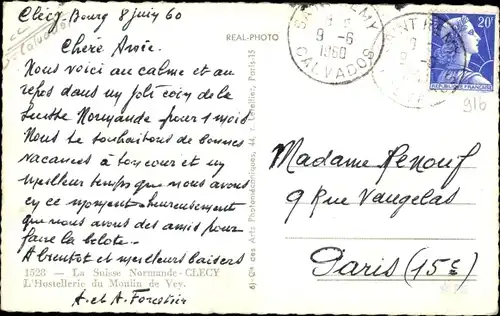 Clécy-Bourg 8 juin 60
Chère Amie.
Nous voici au calme et au
repos dans un joli coin de la
Suisse Normande pour 1 mois
Nous te souhaitons de bonnes
vacances à ton tour et un
meilleur temps que nous avons
en ce moment. heureusement
que nous avons des amis pour
faire la belote.
A bientôt et meilleurs baisers
A. et A. Forestier
1528 - La Suisse Normande-CLECY
L'Hostellerie du Moulin de Vey.
REAL-PHOTO
Cie des Arts Photomécaniques, 44, r. Letellier, Paris-15
9-6
1960
CALVADOS
20F
REPUBLIQUE FRANÇAISE
916
Madame Renouf
9 Rue Vaugelas
Paris (15e)